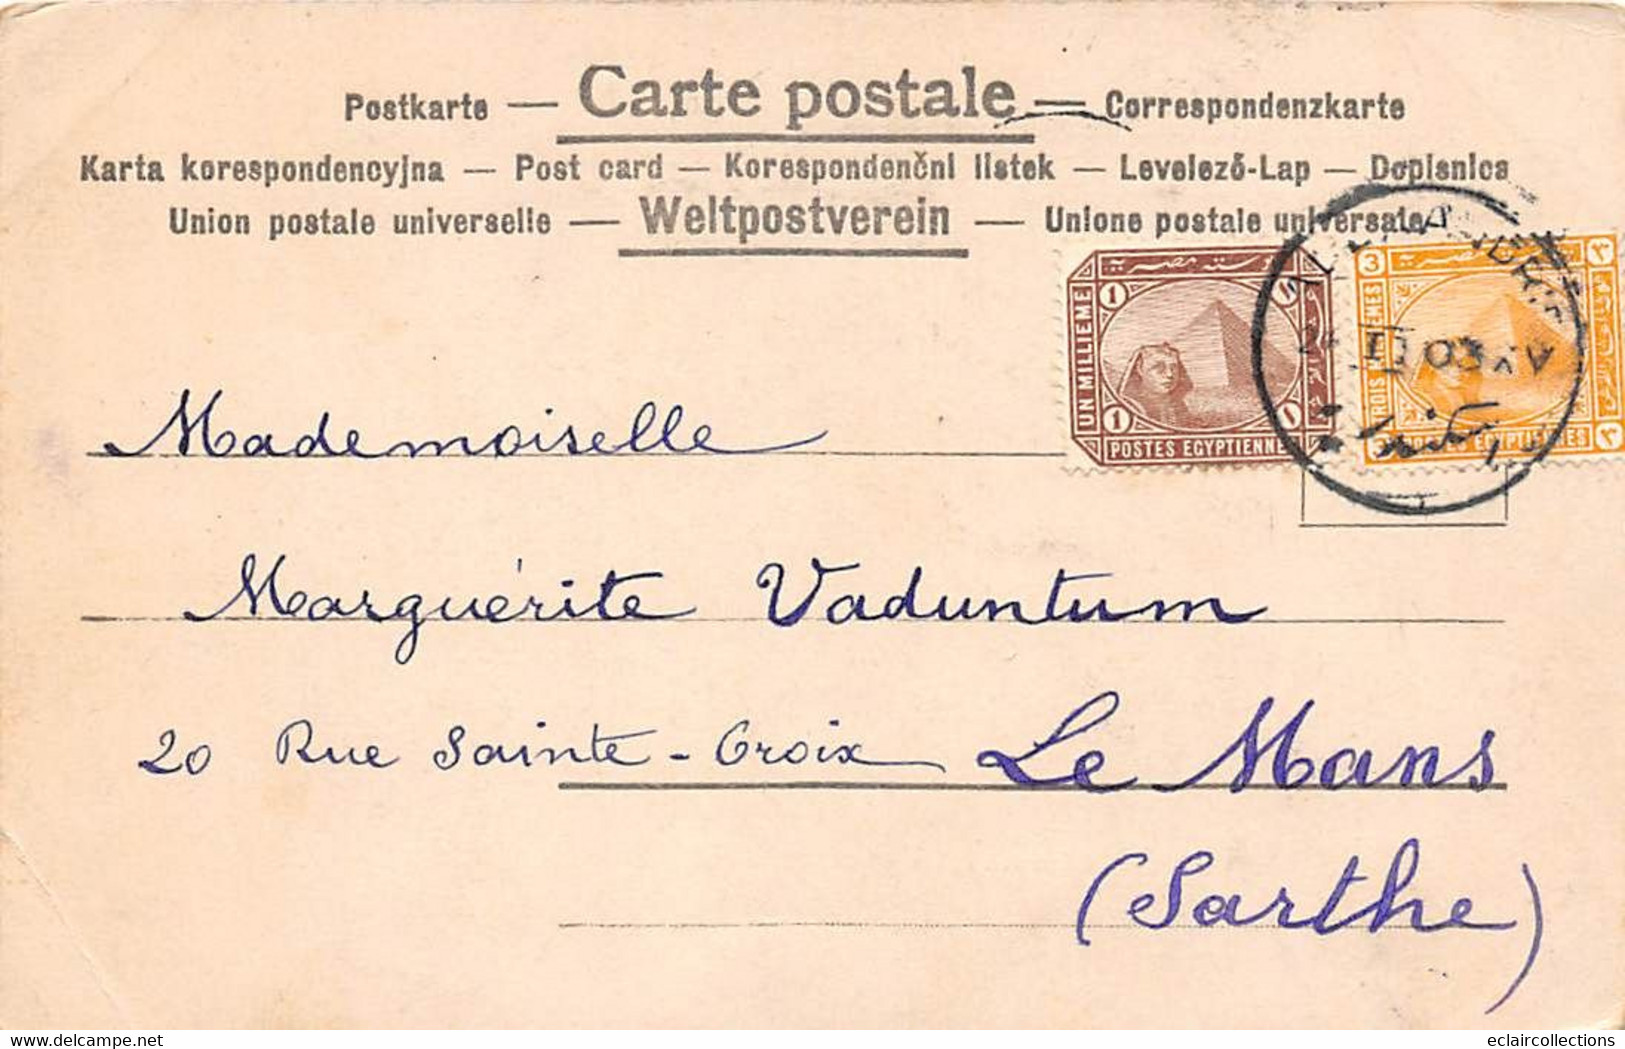 Postkarte — Carte postale — Correspondenzkarte
Karta korespondencyjna — Post card — Korespondenčni listek — Levelező-Lap — Dopisnica
Union postale universelle — Weltpostverein — Unione postale universale
1 1
UN MILLIEME
بوسته مصريه
1 1
POSTES EGYPTIENNES
3 ٣
TROIS MILLIEMES
٣
POSTES EGYPTIENNES
ALEXANDRIE
24 II 03 XV
Mademoiselle
Marguérite Vaduntum
20 Rue Sainte-Croix Le Mans
(Sarthe)
delcampe.net
eclaircollections